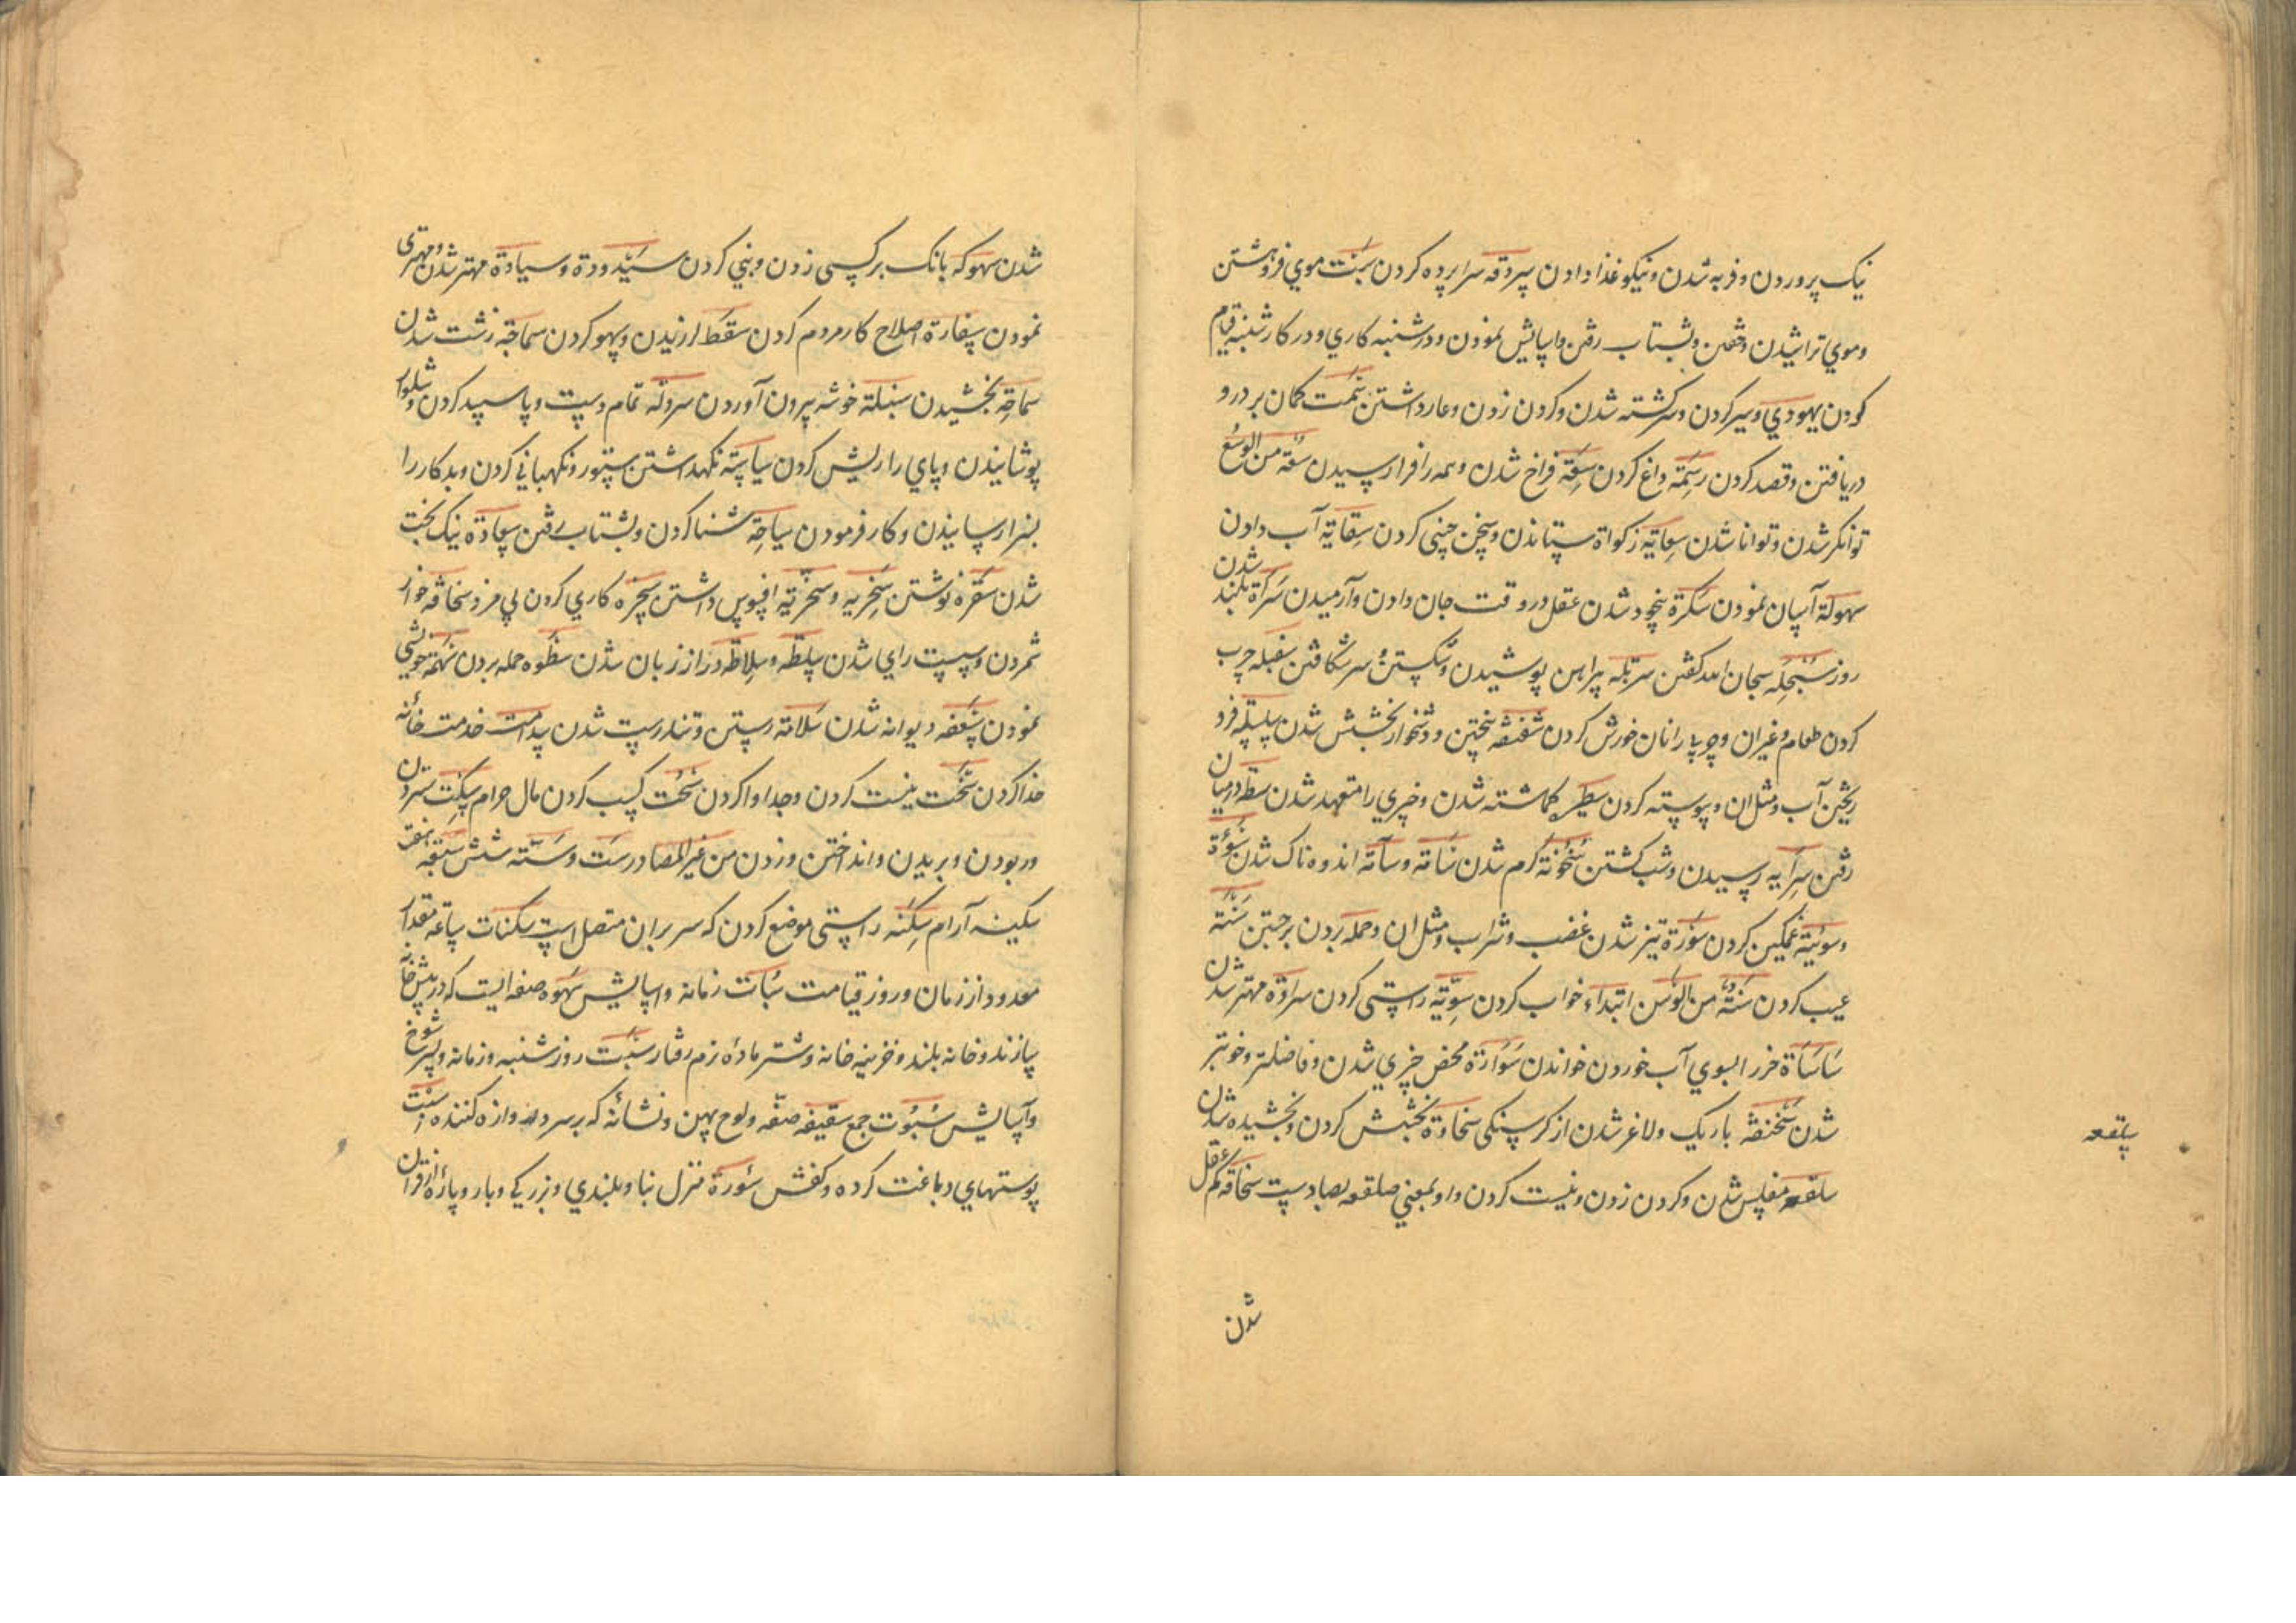 نیک پروردن و فربه شدن و نیکو غذا دادن سردقه سراپرده کردن سبت موی فروهشتن
و موی تراشیدن و خفتن و بشتاب رفتن و اسایش نمودن و در شنبه کاری و در کار شنبه قیام
کردن یهودی و سیر کردن و سرکشته شدن و کردن زدن و عار داشتن کمان بردن و
دریافتن و قصد کردن داغ کردن سعة فراخ شدن و همه را فرا رسیدن سعة من الوسع
توانکر شدن و توانا شدن سعایة زکواة ستاندن و سخن چینی کردن سقایة آب دادن
سهولة آسان نمودن سکرة بیخود شدن عقل در وقت جان دادن و آرمیدن بلند شدن
روز سبحلة سبحان الله کفتن سربلة پیراهن پوشیدن و شکستن و سر شکافتن سغبلة چرب
کردن طعام و غیر ان و چوپا را نان خورش کردن بخشش شدن سلسلة فرو
ریختن آب و مثل ان و پیوسته کردن سیطرة کماشته شدن و چیزی را متعهد شدن در میان
رفتن سرایة رسیدن و شب کشتن سخونة کرم شدن سأمة و سآمة اندوه ناک شدن
و سوئیة غمکین کردن سورة تیز شدن غضب و شراب و مثل ان و حمله بردن برجستن
عیب کردن سنة من الوسن ابتداء خواب کردن سویة راستی کردن سرادة مهتر شدن
سأسأة خر را بسوی آب خوردن خواندن سوارة محض چیزی شدن و فاضلتر و خوبتر
شدن باریک و لاغر شدن از کرسنکی سخاوة بخشش کردن و بخشیده شدن
سلقعه مفلس شدن و کردن زدن و نیست کردن و او بمعنی صلقعه بصادست سخافة کم عقل
سلقعه
شدن
شدن سهوکة بانک بر کسی زدن و بینی کردن سیدودة و سیادة مهتر شدن و مهتری
نمودن سفارة اصلاح کار مردم کردن سقط لرزیدن و سهو کردن سماجة زشت شدن
سماحة بخشیدن سنبلة خوشه بیرون آوردن سرولة تمام دست و پا سپید کردن و شلوار
پوشانیدن و پای را ریش کردن سیاسة نکهداشتن ستور و نکهبانی کردن و بد کار را
بسزا رسانیدن و کار فرمودن سیاحة شنا کردن و بشتاب رفتن سعادة نیک بخت
شدن سفرة نوشتن سخریة و سخریة افسوس داشتن سخرة کاری کردن بی مزد سخافة خوار
شمردن و سست رای شدن سلطة و سلاطة دراز زبان شدن سطوة حمله بردن
نمودن دیوانه شدن سلامة رستن و تندرست شدن سدانت خدمت خانه
خدا کردن سحت نیست کردن و جدا وا کردن سحت کسب کردن مال حرام
و ربودن و بریدن و انداختن و زدن من غیر المصادر ست و ستة شش سبعة هفت
سکینة آرام سکنة راستی موضع کردن که سر بر ان متصل است سکنات ساعة مقدار
معدود از زمان و روز قیامت سبات زمانه و اسایش سهوة صفه ایست که در پیش خانه
سازند و خانه بلند و خزینه خانه و شتر ماده نرم رفتار سبت روز شنبه و زمانه و پسر شوخ
و آسایش سبوت جمع سقیفة صفه و لوح پهن و نشانه که بر سر دروازه کننده
پوستهای دباغت کرده و کفش سورة منزل بنا و بلندی و بزرکی و بار و پاره از قران